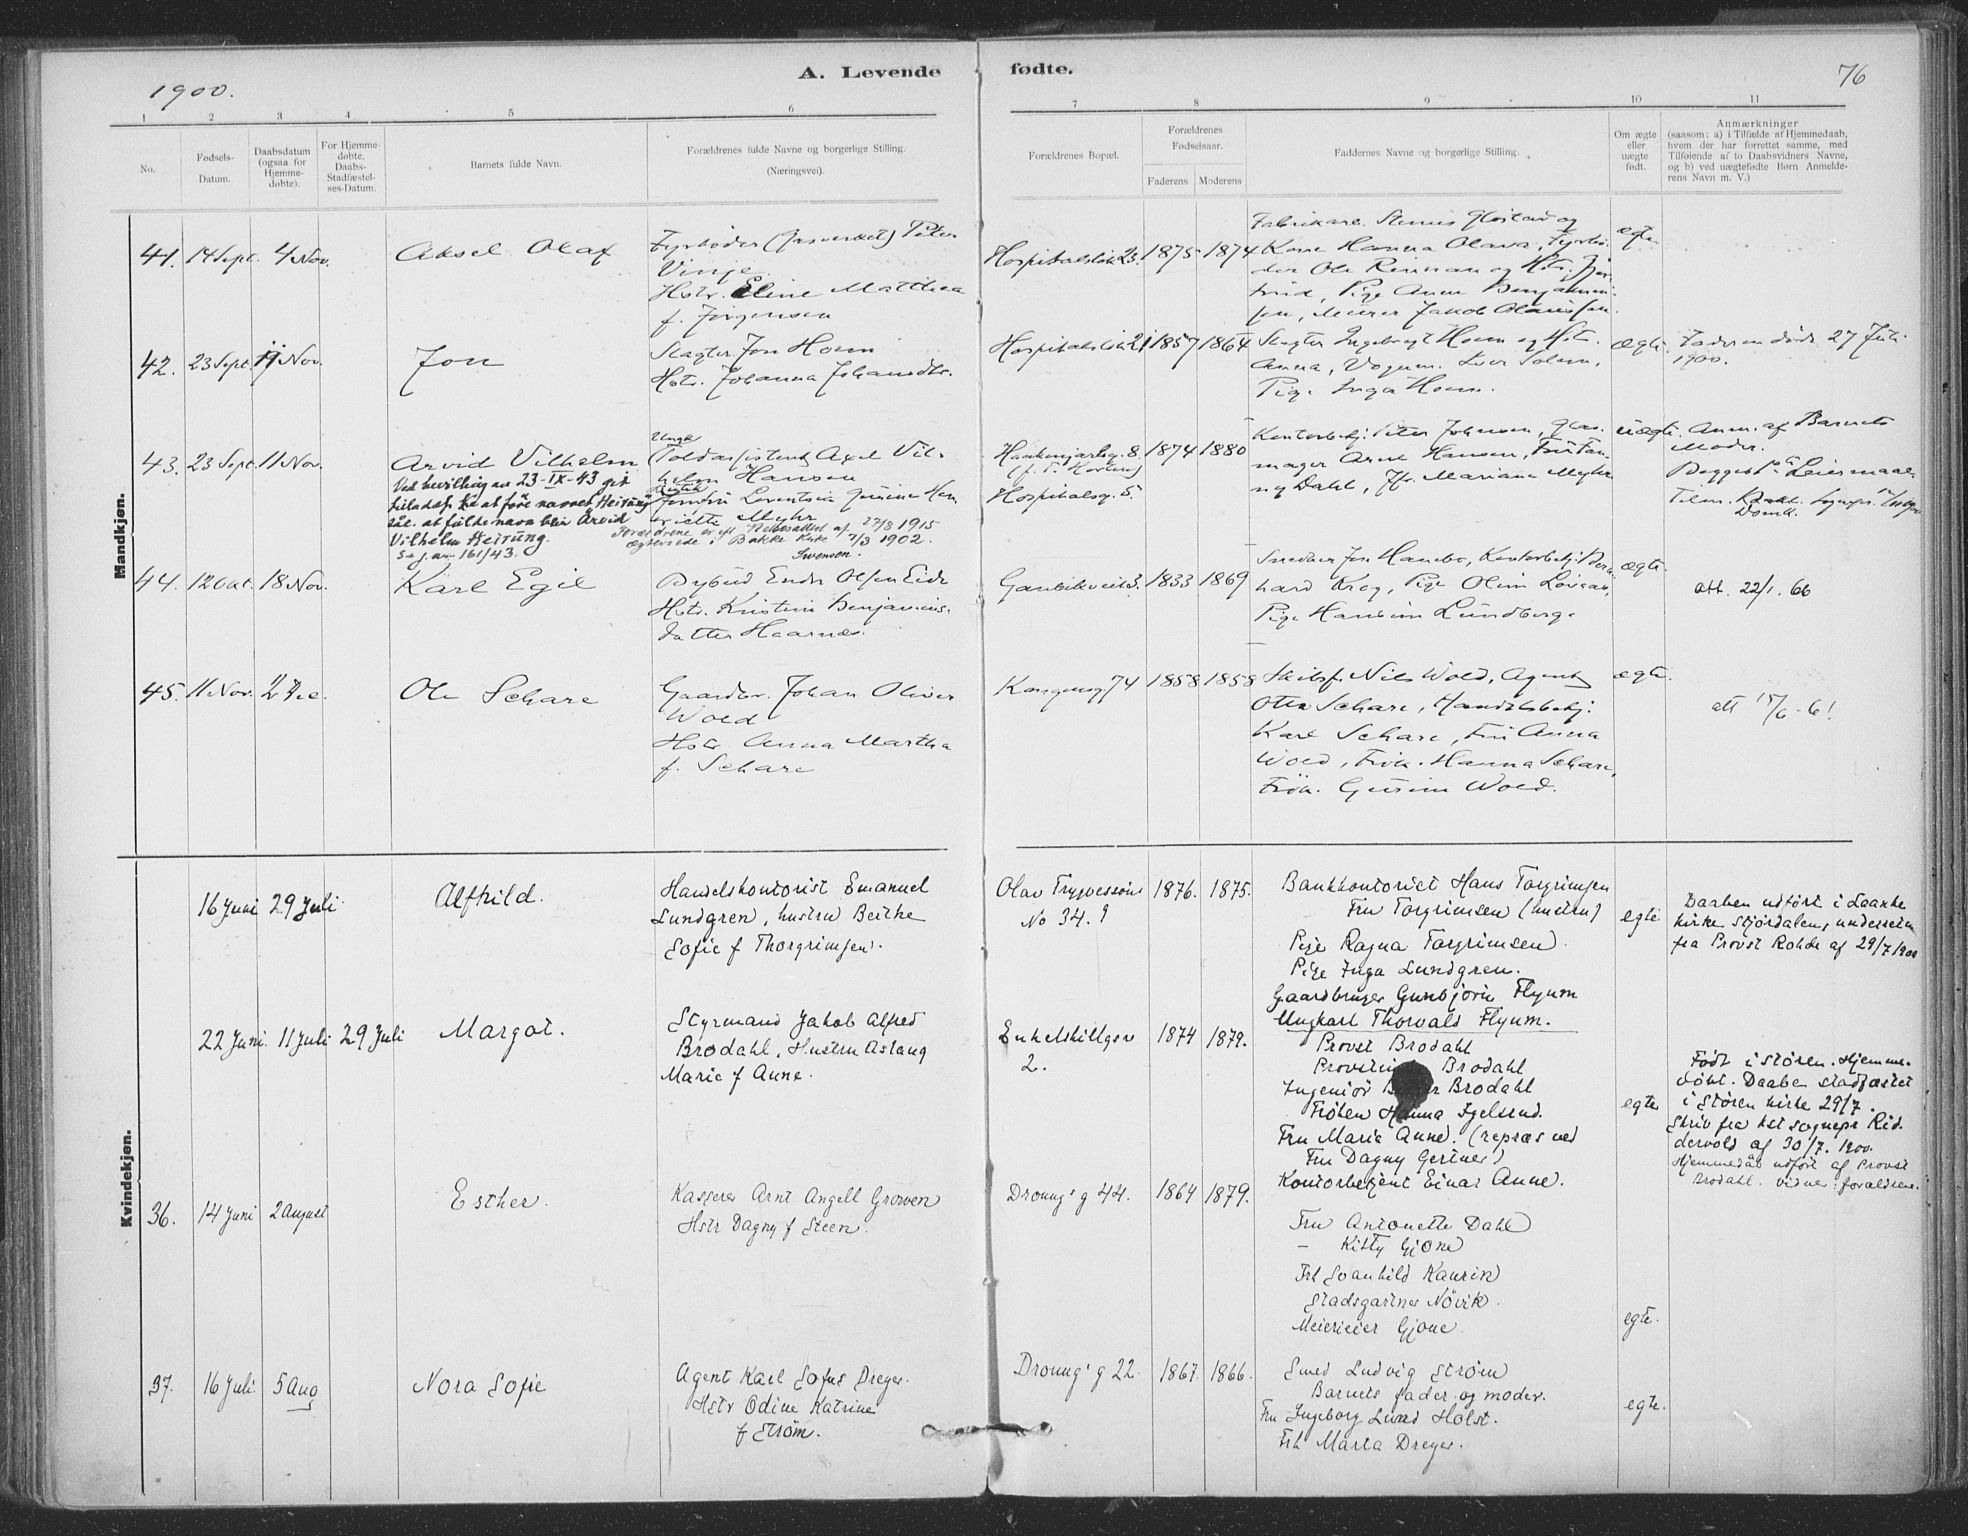 1900.
A. Levende
fødte.
76
1 2 3 4 5 6 7 8 9 10 11
No.
Fødsels-
Datum.
Daabsdatum
(ogsaa for
Hjemme-
døbte).
For Hjemme-
døbte,
Daabs-
Stadfæstel-
ses-Datum.
Barnets fulde Navn.
Forældrenes fulde Navne og borgerlige Stilling.
(Næringsvei).
Forældrenes Bopæl.
Forældrenes
Fødselsaar.
Faderens Moderens
Faddernes Navne og borgerlige Stilling.
Om ægte
eller
uægte
født.
Anmærkninger
(saasom: a) i Tilfælde af Hjemmedaab,
hvem der har forrettet samme, med
Tilføiende af to Daabsvidners Navne,
og b) ved uægtefødte Børn Anmelde-
rens Navn m. V.)
Mandkjøn.
41. 14 Sept. 4 Nov. Aksel Olaf
Fyrbøder (Gasverket) Peter
Vinje
Hstr. Eline Mathea
f. Jörgensen
1875 1874
Kone Hanna Olava, Fyrbö-
der Ole Rinnan og Hstr.
Pige Anna Benjamin-
sen, Murer Jakob
egte
42. 23 Sept. 11 Nov. Jon
Slagter Jon Hoem
Hstr. Johanna Johansdtr.
1857 1864
Slagter Ingebrigt Hoem og Hstr.
Anna, Vognm. Iver Solem,
Pige Inga Hoem.
ægte.
Faderen död 27 Juli
1900.
43. 23 Sept. 11 Nov. Arvid Vilhelm
Ved bevilling av 23-IX-43 gitt
tilladelse til at före navnet Heirung
at fulde navn blir Arvid
Vilhelm Heirung.
Se j.nr. 161/43.
Ungk.
Toldassistent Axel Vil-
helm Hansen
Laurentsia Gusine Hen
riette Myhr
Forældrene er eft. Vielsesattest af 27/8 1915
ægteviede i Bakke Kirke 7/3 1902.
Swensen.
8.
(p. T. Horten)
Hospitalsg. 5.
1874 1880
Kontorbetj. Peter Johnsen,
mager Arne Hansen, Fru Tan-
ny Dahl, Jfr. Mariane Myhr
uægte.
Anm. af Barnets
Moder.
Begges 1ste Leiermaal
44. 12 Oct. 18 Nov. Karl Egil
Bybud Endre Olsen Eide
Hstr. Kristine Benjamins-
datter Haarnes.
Ganbikveit 3. 1833 1869
Snedker Jon Hambo, Kontorbetj. Bern
hard Krog, Pige Oline
Pige Hansine Lundberg.
ægte.
att. 22/1. 66
45. 11 Nov. 2 Dec. Ole Schare
Gaardbr. Johan Oliver
Wold
Hstr. Anna Martha
f. Schare
Kongensg. 74 1858 1858
Skibsf. Nils Wold, Agent
Otto Schare, Handelsbetj.
Karl Schare, Fru Anna
Wold, Frök. Hanna Schare,
Frök. Gusine Wold.
ægte.
att 15/6-61
Kvindekjøn.
16 Juni 29 Juli. Alfhild.
Handelskontorist Emanuel
Lundgren, hustru Berthe
Sofie f Thorgrimsen.
Olav Trygvessöns
No 34.
1876. 1875.
Bankkontorist Hans Torgrimsen
Fru Torgrimsen (hustru)
Pige Ragna Torgrimsen
Pige Inga Lundgren.
Gaardbruger Gunbjörn Flyum
Ungkarl Thorvald Flyum.
egte
Daaben udført i Laanke
kirke Stjørdalen, underretn
fra Provst Rohde af 29/7 1900
22 Juni. 11 Juli 29 Juli Margot.
Styrmand Jakob Alfred
Brodahl, Hustru Aslaug
Marie f Aune.
Enkeltskillgsv
2.
1874 1879.
Provst Brodahl
Provstinde Brodahl
Ingeniör Brodahl
Fröken Hanna Igelsrud.
Fru Marie Aune. (repræs ved
Fru Dagny Gertner)
Kontorbetjent Einar Aune.
egte
Født i Støren. Hjemme-
döbt. Daaben stadfæstet
i Støren kirke 29/7.
Skriv fra res sognepr Rid-
dervold af 30/7. 1900.
Hjemmedåb udført af Provst
Brodahl. vidner: forældrene.
36. 14 Juni 2 August Esther.
Kasserer Arnt Angell Growen
Hstr Dagny f Steen.
Dronng's g 44. 1864 1879.
Fru Antonette Dahl
— Kitty Gjone
Frk Svanhild Kaurin
Stadsgartner Növik.
Meierieier Gjone.
egte.
37. 16 Juli 5 Aug Nora Sofie
Agent Karl Sofus Dreyer.
Hstr Odine Katrine
f Strøm.
Dronng's g 22. 1867. 1866.
Smed Ludvig Strøm
Barnets fader og moder.
Fru Ingeborg Lund Holst.
Frk Marta Dreyer.
egte.